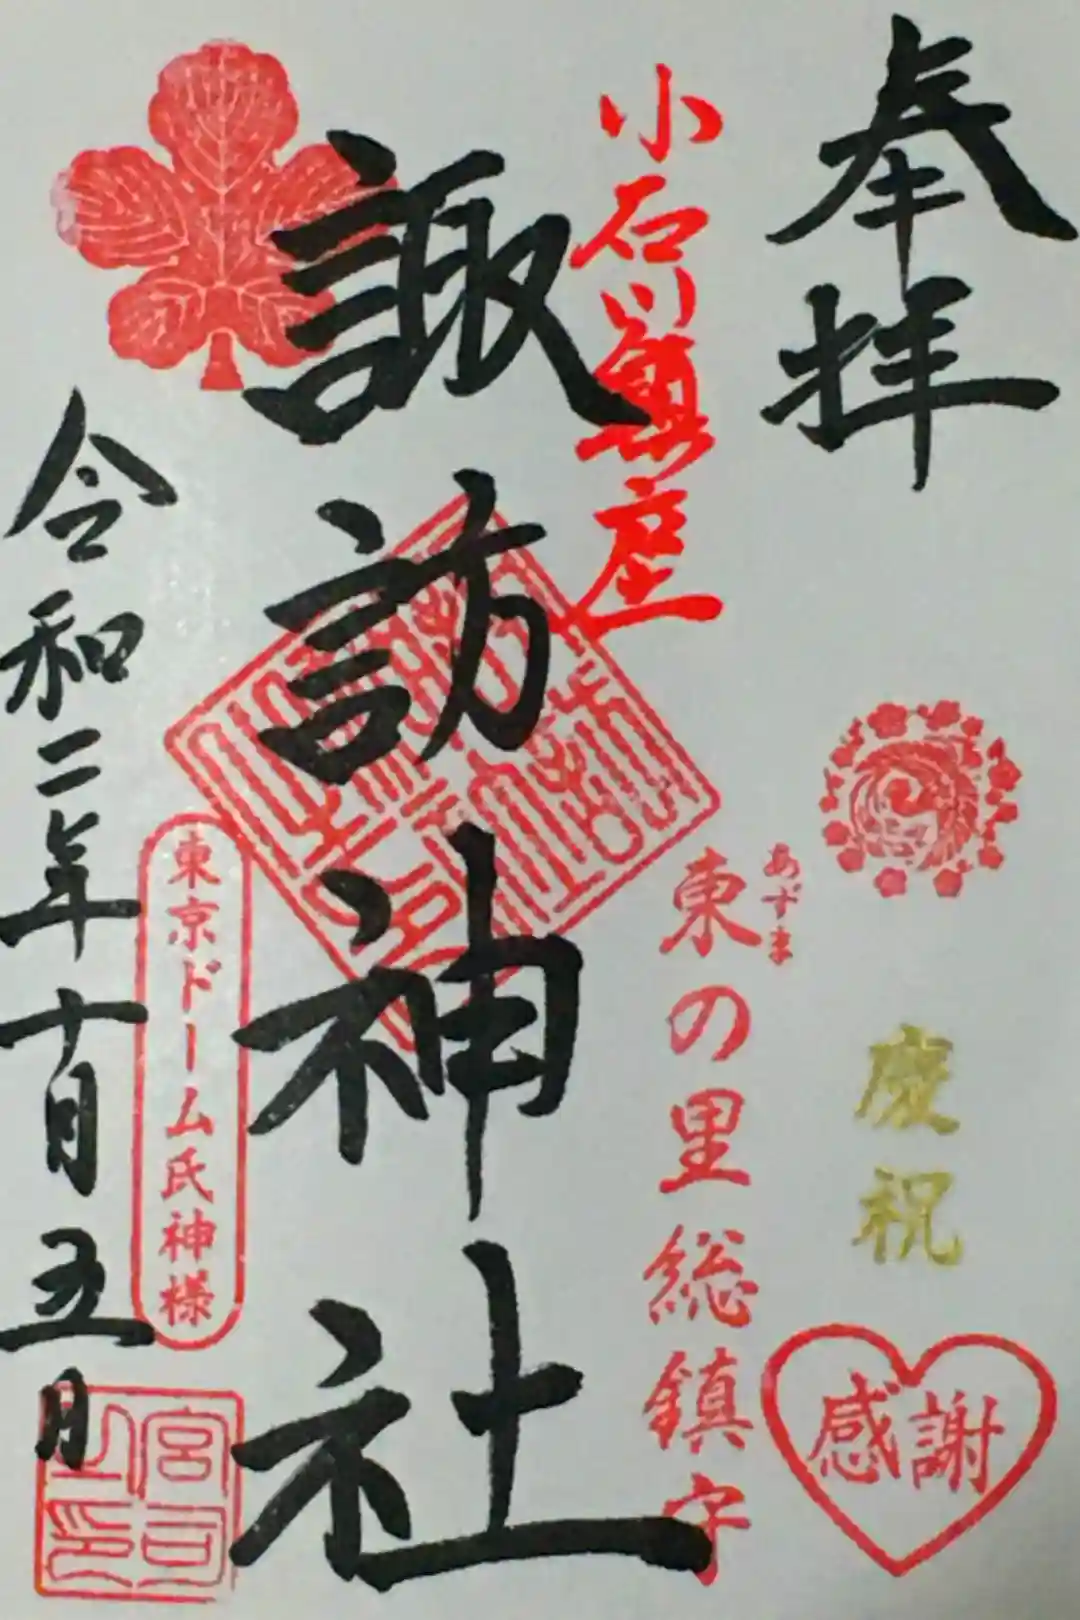 奉拝
慶祝
感謝
小石川鎮座
あずま
東の里総鎮守
諏訪神社
東京ドーム氏神様
令和二年十月五日
宮司之印